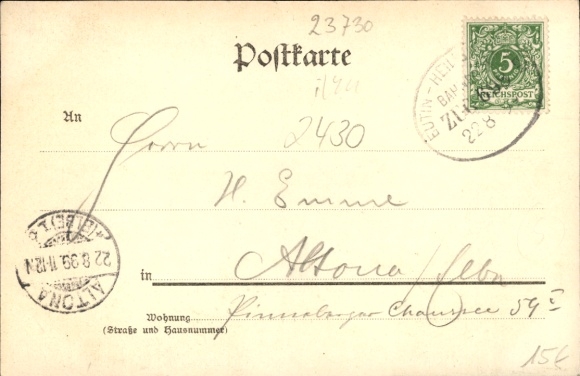 23730
Postkarte
5
REICHSPOST
EUTIN - HEIL
BAH
ZUG
22 8
An
Herrn
2430
H. Emme
in Altona/Elbe
Wohnung Pinneberger Chaussee 59 I
(Straße und Hausnummer)
ALTONA
22.8.99.11-12 V
15€